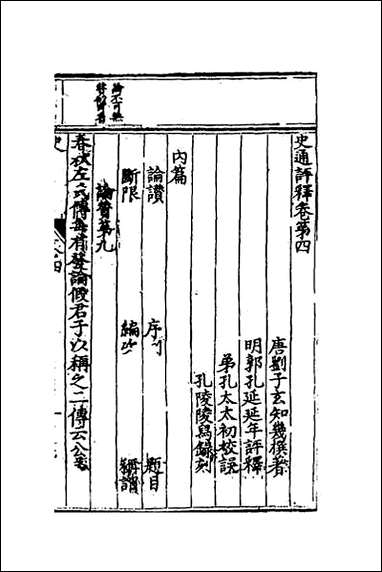 史通評釋卷第四
唐劉子玄知幾撰著
明郭孔延延年評釋
弟孔太太初校誤
孔陵陵寫錄刻
內篇
論讚 序 題目
斷限 編 稱謂
論贊第九
春秋左氏傳每有發論假君子以稱之二傳云公